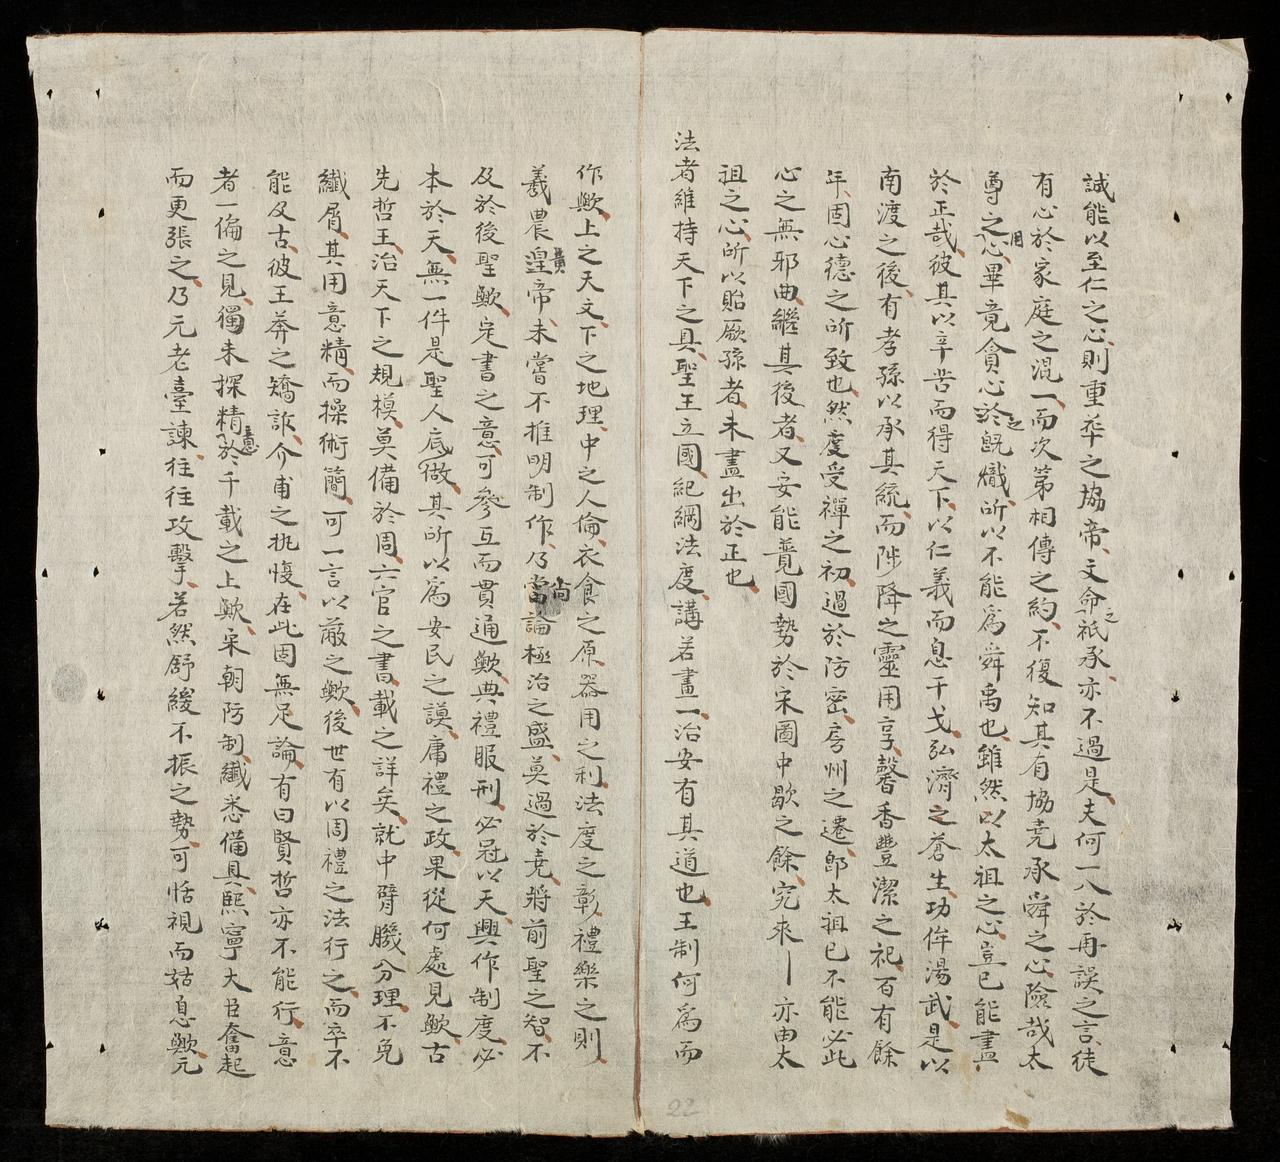 誠能以至仁之心則重華之協帝文命之祇承亦不過是夫何一入於再誤之言徒
有心於家庭之混一而次第相傳之約不復知其有協堯承舜之心險哉太
尊之心用畢竟貪心之於既熾所以不能為舜禹也雖然以太祖之心豈已能盡
於正哉彼其以辛苦而得天下以仁義而息干戈弘濟之蒼生功侔湯武是以
南渡之後有孝孫以承其統而陟降之靈用享馨香豊潔之祀百有餘
年固心德之所致也然度受禪之初過於防密房州之遷郎太祖已不能必此
心之無邪曲繼其後者又安能覓國勢於宋圖中歇之餘究來丨亦由太
祖之心所以貽厥孫者未盡出於正也
法者維持天下之具聖王立國紀綱法度講若畫一治安有其道也王制何為而
作歟上之天文下之地理中之人倫衣食之原器用之利法度之彰禮樂之則
羲農皇黃帝未嘗不推明制作乃當尚論極治之盛莫過於堯將前聖之智不
及於後聖歟定書之意可參互而貫通歟典禮服刑必冠以天興作制度必
本於天無一件是聖人底做其所以為安民之謨庸禮之政果從何處見歟古
先哲王治天下之規模莫備於周六官之書載之詳矣就中臂機分理不免
纖屑其用意精而操術簡可一言以蔽之歟後世有以周禮之法行之而卒不
能及古彼王莽之矯詐介甫之執愎在此固無足論有曰賢哲亦不能行意
者一偏之見獨未探精意於千載之上歟宋朝防制纖悉備具熙寧大臣奮起
而更張之乃元老臺諫往往攻擊若然舒緩不振之勢可恬視而姑息歟元
22